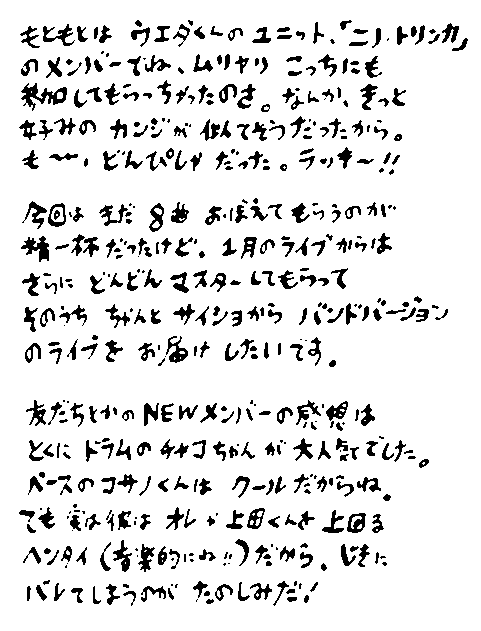 もともとは ウエダくんの ユニット、「ニノ・トリンカ」
のメンバーでね、ムリヤリ こっちにも
参加してもらっちゃったのさ。なんか、きっと
好みの カンジが 似てそうだったから。
も〜〜、どんぴしゃ だった。ラッキ〜!!
今回は まだ 8曲 おぼえてもらうのが
精一杯だったけど、1月のライブからは
さらに どんどん マスターしてもらって
そのうち ちゃんと サイショから バンドバージョン
のライブを お届け したいです。
友だちとかの NEWメンバーの感想は
とくに ドラムの チャコちゃん が 大人気でした。
ベースの コサノくんは クールだからね。
でも 実は彼は オレや 上田くんを 上回る
ヘンタイ(音楽的にね!!)だから、じきに
バレてしまうのが たのしみだ!